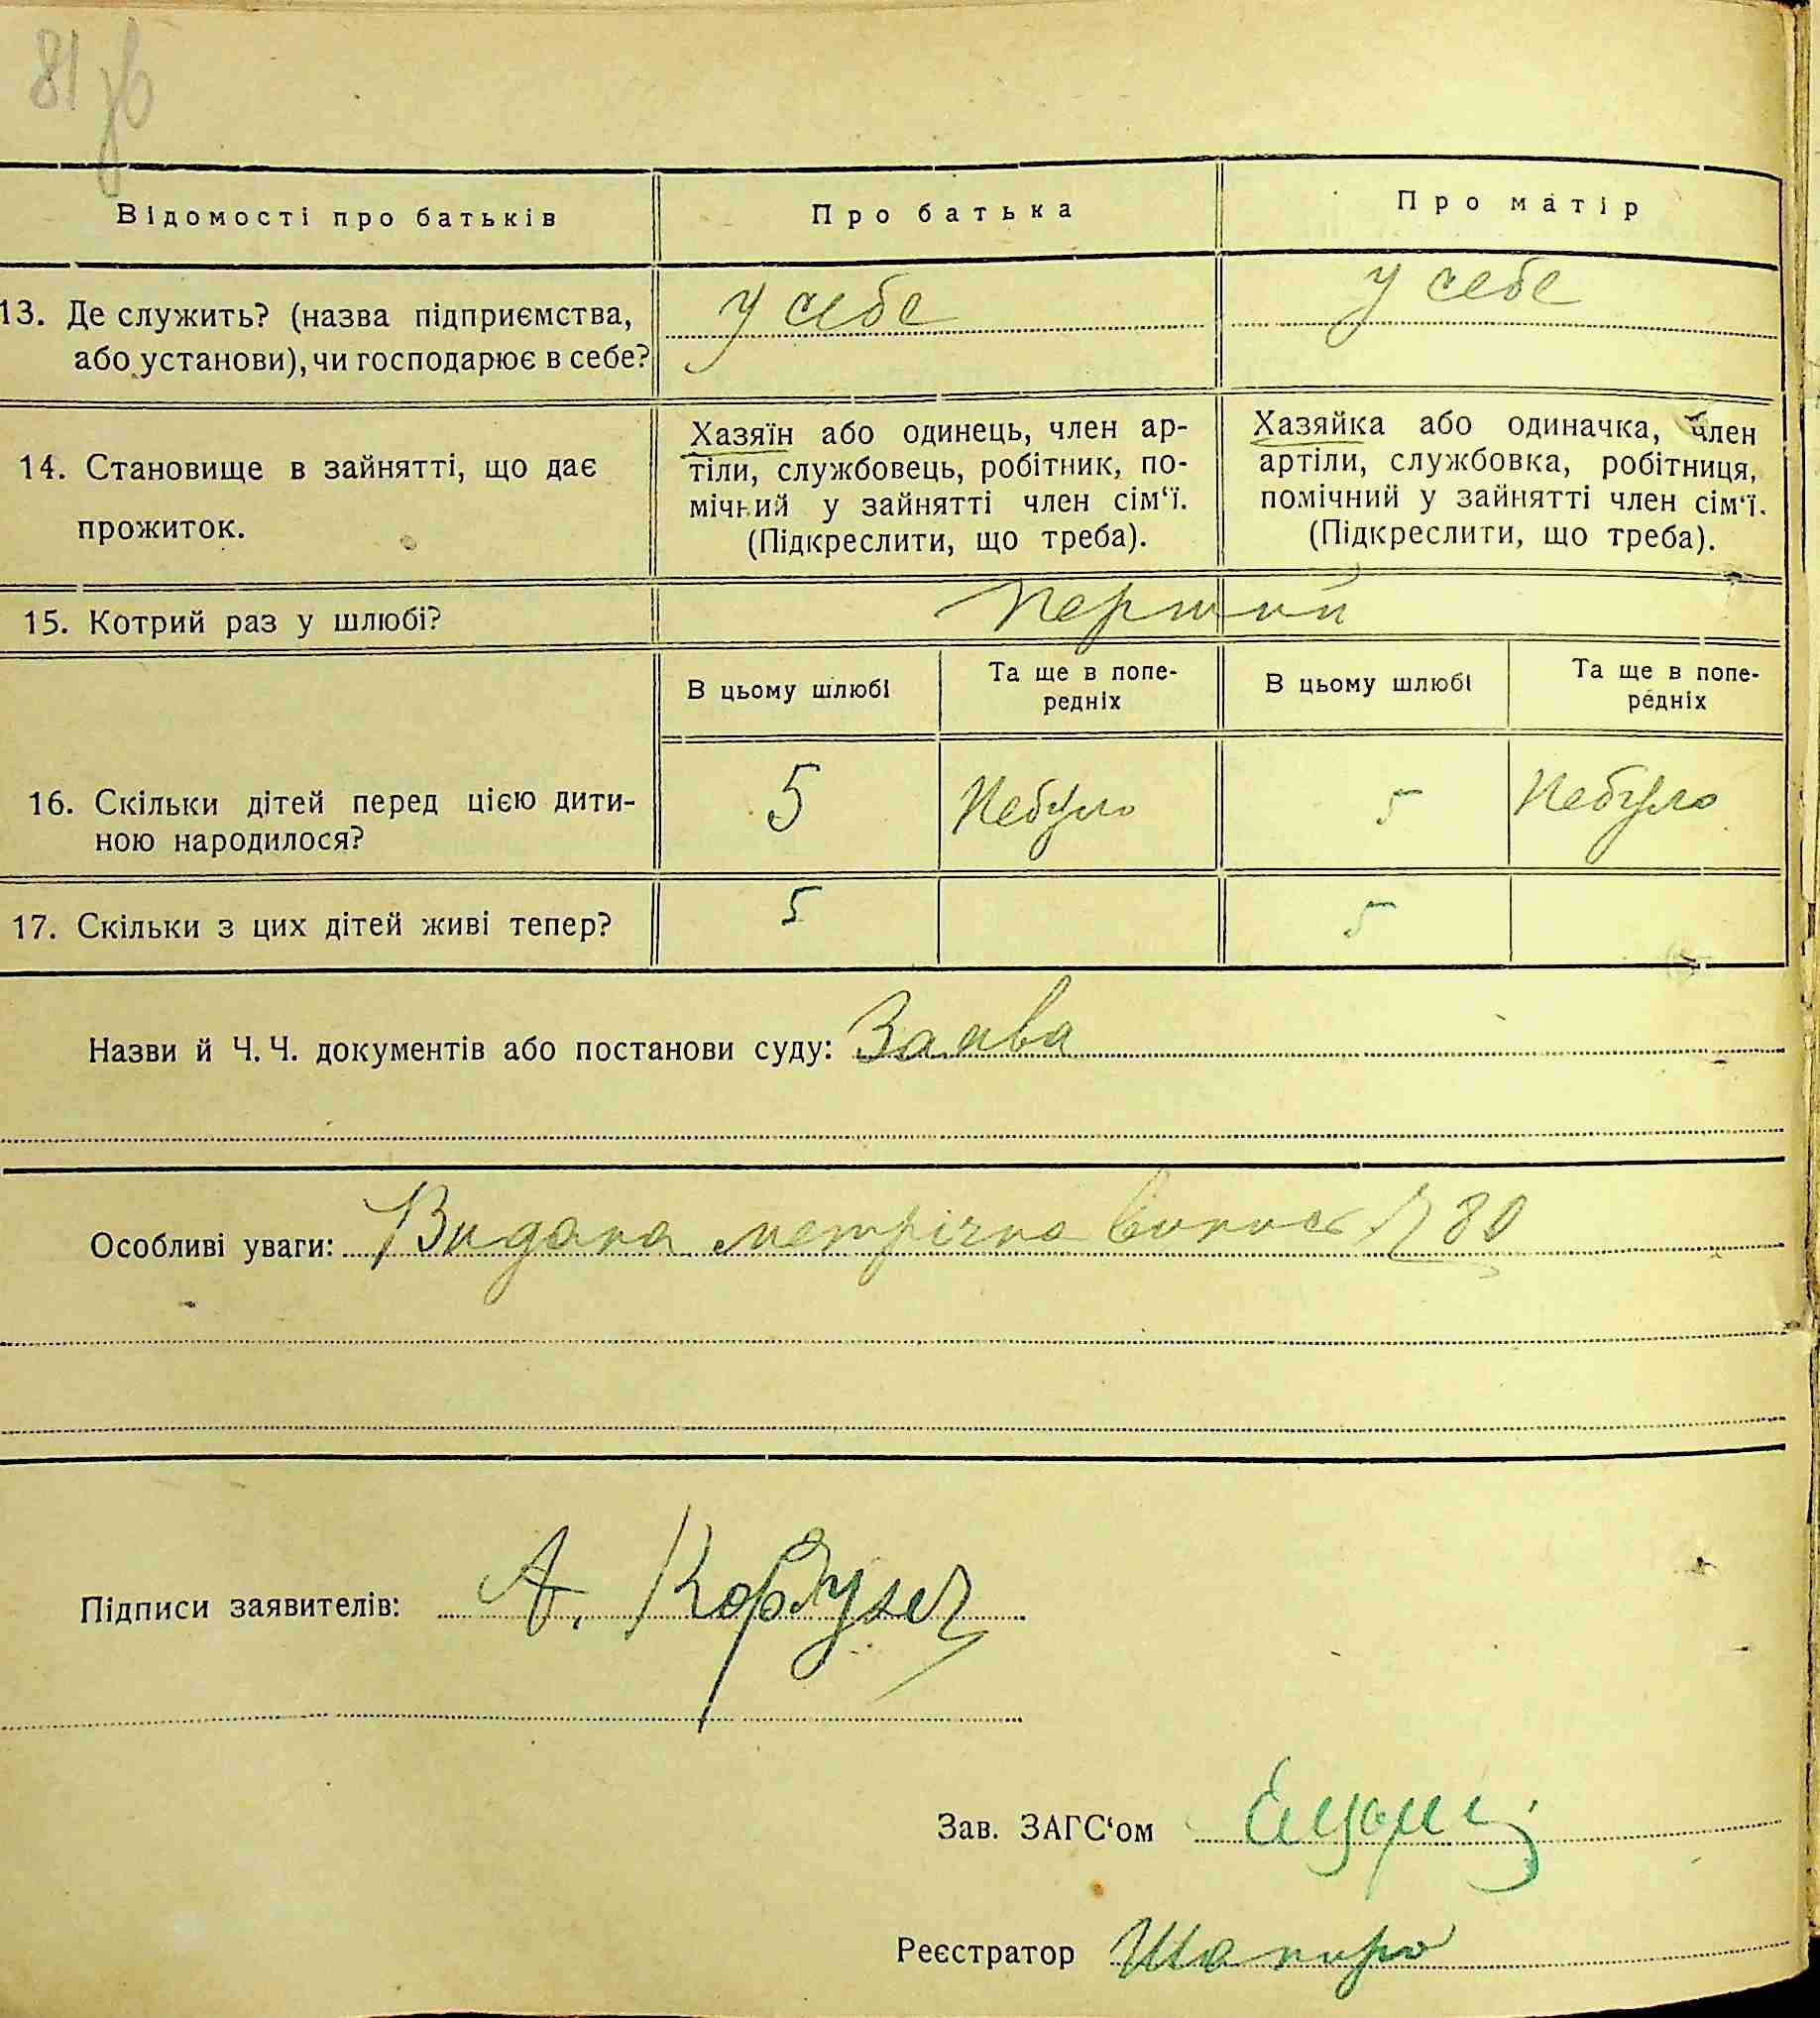 81 зв
Відомості про батьків
Про батька
Про матір
13. Де служить? (назва підприємства,
або установи), чи господарює в себе?
у себе
у себе
14. Становище в зайнятті, що дає
прожиток.
Хазяїн або одинець, член ар-
тіли, службовець, робітник, по-
мічний у зайнятті член сім‘ї.
(Підкреслити, що треба).
Хазяйка або одиначка, член
артіли, службовка, робітниця,
помічний у зайнятті член сім‘ї.
(Підкреслити, що треба).
15. Котрий раз у шлюбі?
перший
В цьому шлюбі
Та ще в попе-
редніх
В цьому шлюбі
Та ще в попе-
редніх
16. Скільки дітей перед цією дити-
ною народилося?
5
Небуло
5
Небуло
17. Скільки з цих дітей живі тепер?
5
5
Назви й Ч. Ч. документів або постанови суду: Заява
Особливі уваги: Видана метрічна випись № 80
Підписи заявителів: А.
Зав. ЗАГС‘ом
Реєстратор Шапиро